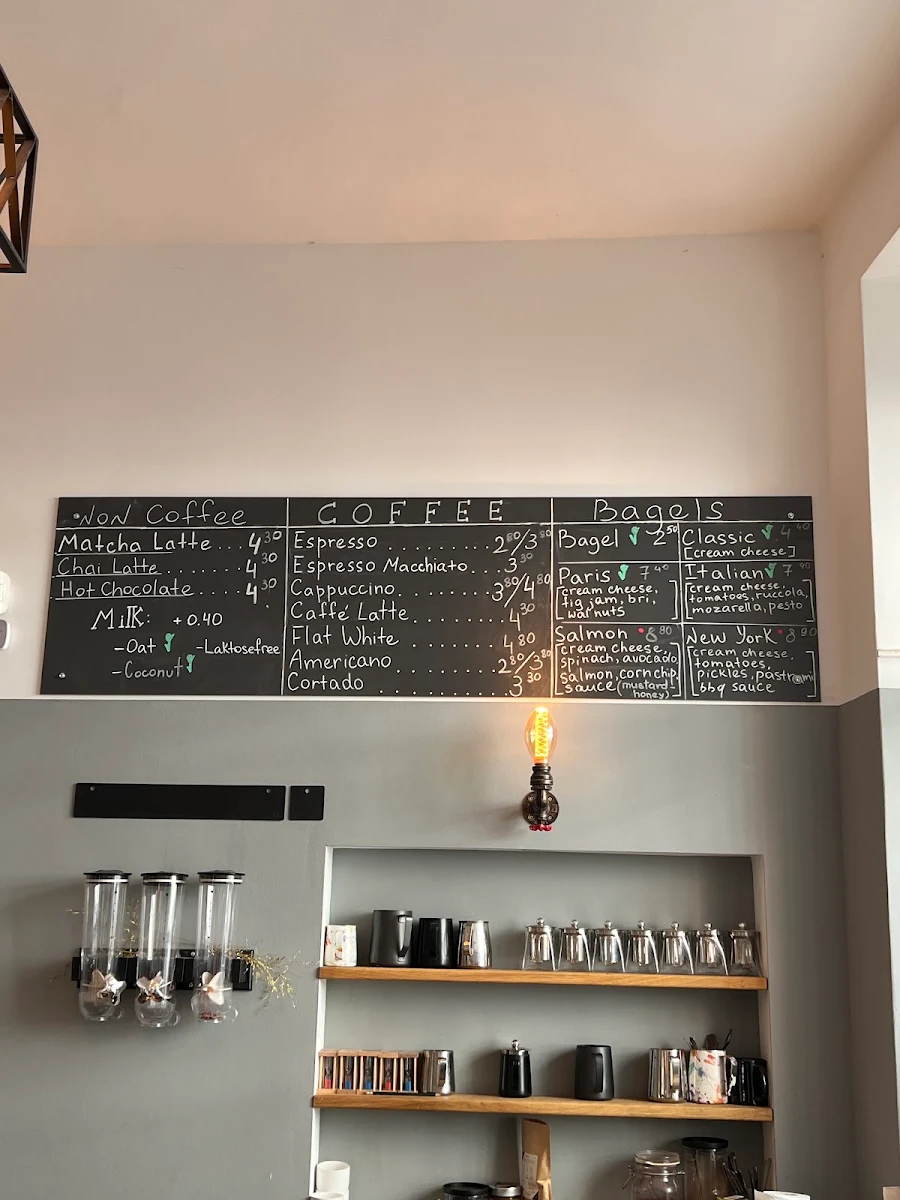 NON Coffee
Matcha Latte ... 4 30
Chai Latte ........ 4 30
Hot Chocolate ..... 4 30
Milk: +0.40
-Oat -Laktosefree
-Coconut
COFFEE
Espresso .......... 2 80/3 80
Espresso Macchiato... 3 30
Cappuccino ........ 3 80/4 80
Caffé Latte ........ 4 30
Flat White ........ 4 80
Americano ........ 2 80/3 80
Cortado ........ 3 30
Bagels
Bagel 2 50
Classic 4 40
[cream cheese]
Paris 7 40
[cream cheese,
fig jam, bri,
walnuts]
Italian 7 90
[cream cheese,
tomatoes, ruccola,
mozarella, pesto]
Salmon 8 80
[cream cheese,
spinach, avocado,
salmon, corn chip,
sauce (mustard-
honey)]
New York 8 90
[cream cheese,
tomatoes,
pickles, pastrami
bbq sauce]